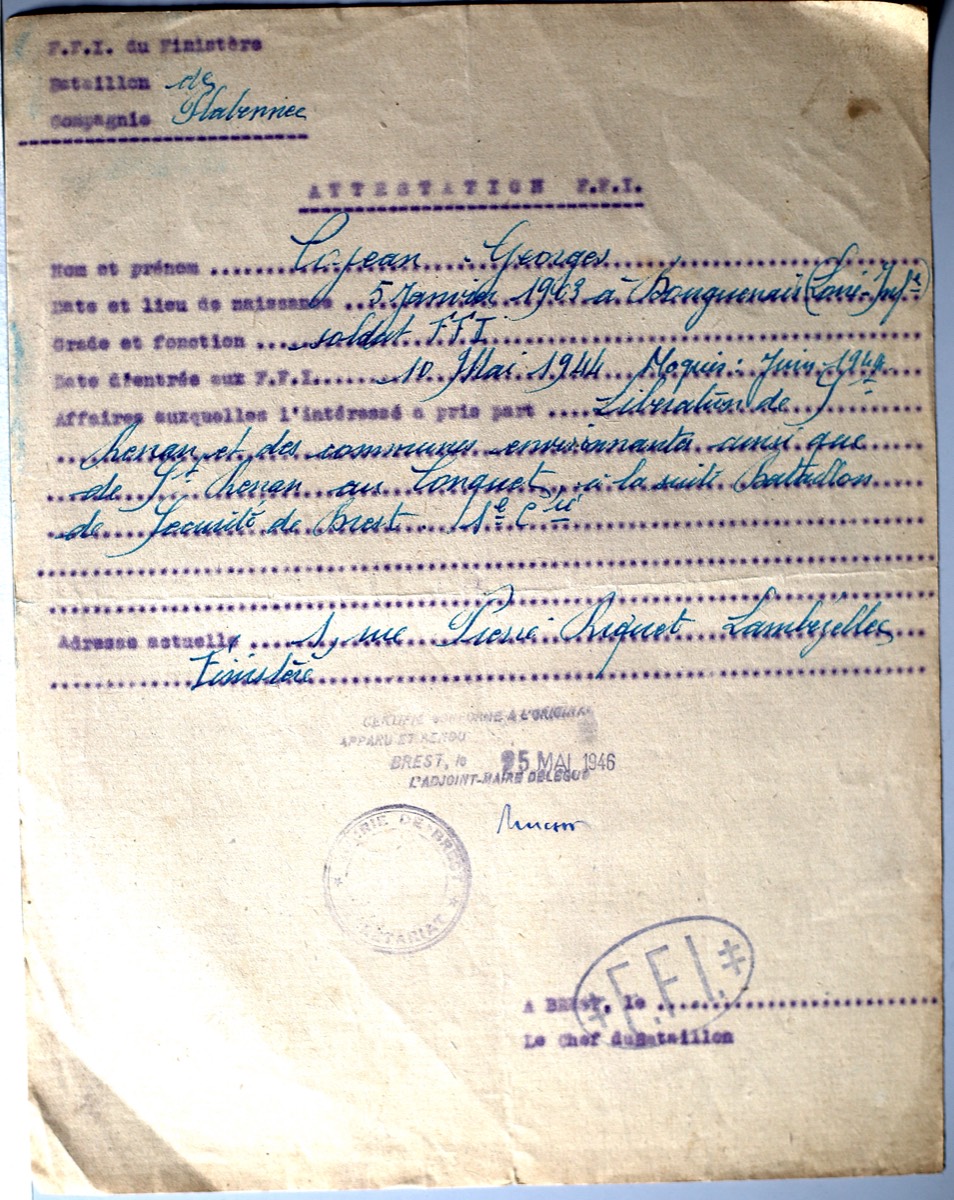 F.F.I. du Finistère
Bataillon de
Compagnie Plabennec
ATTESTATION F.F.I.
Nom et prénom ... Lajean - Georges
Date et lieu de naissance ... 5 Janvier 19 3 à Bouguenais (Loire-Infre)
Grade et fonction ... soldat FFI
Date d'entrée aux F.F.I. ... 10 Mai 1944 Maquis : Juin 1944
Affaires auxquelles l'intéressé a pris part ... Libération de St
Renan et des communes environnantes ainsi que
de St Renan au Conquet, à la suite Battaillon
de Sécurité de Brest. 1e Cie
Adresse actuelle ... 1, rue Pierre Riquet Lambézellec
Finistère
CERTIFIE CONFORME A L'ORIGINAL
APPARU ET RENDU
BREST, le 25 MAI 1946
L'ADJOINT-MAIRE DELEGUE
MAIRIE DE BREST
SECRETARIAT
F.F.I.
A BREST, le ...
Le Chef du Bataillon